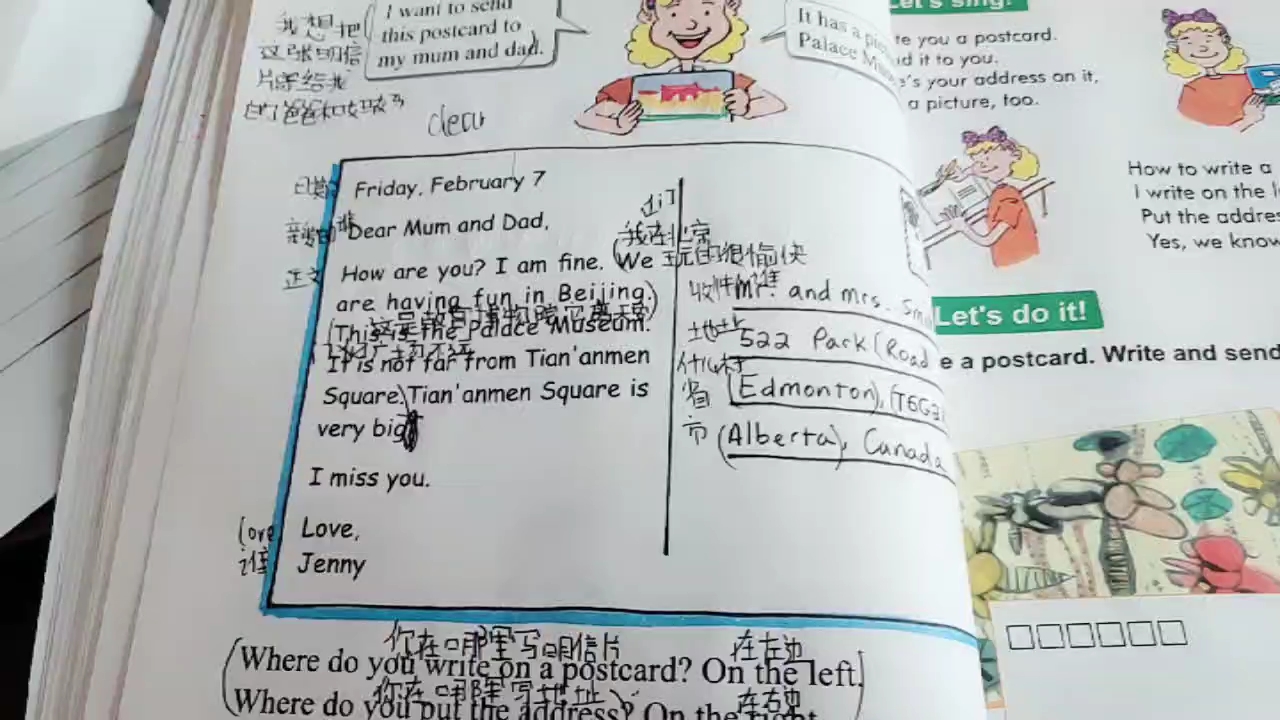 我想把
这张明信
片寄给我
的爸爸和妈妈
I want to send
this postcard to
my mum and dad.
It has a
Palace
Let's sing!
te you a postcard.
d it to you.
's your address on it,
a picture, too.
How to write a
I write on the
Put the addre
Yes, we know
dear
Friday, February 7
Dear Mum and Dad,
出门
我在北京
How are you? I am fine. (We 玩的很愉快
正文
are having fun in Beijing.)
(This is the Palace Museum.
It is not far from Tian'anmen
Square.)Tian'anmen Square is
very big
I miss you.
love
Love,
Jenny
收件 mr. and mrs.
地址 522 Park (Road
省 (Edmonton),
市 (Alberta), Canada
Let's do it!
e a postcard. Write and send
你在哪里写明信片 在左边
(Where do you write on a postcard? On the left.)
你在哪里写地址 在右边
(Where do you put the address? On the right.